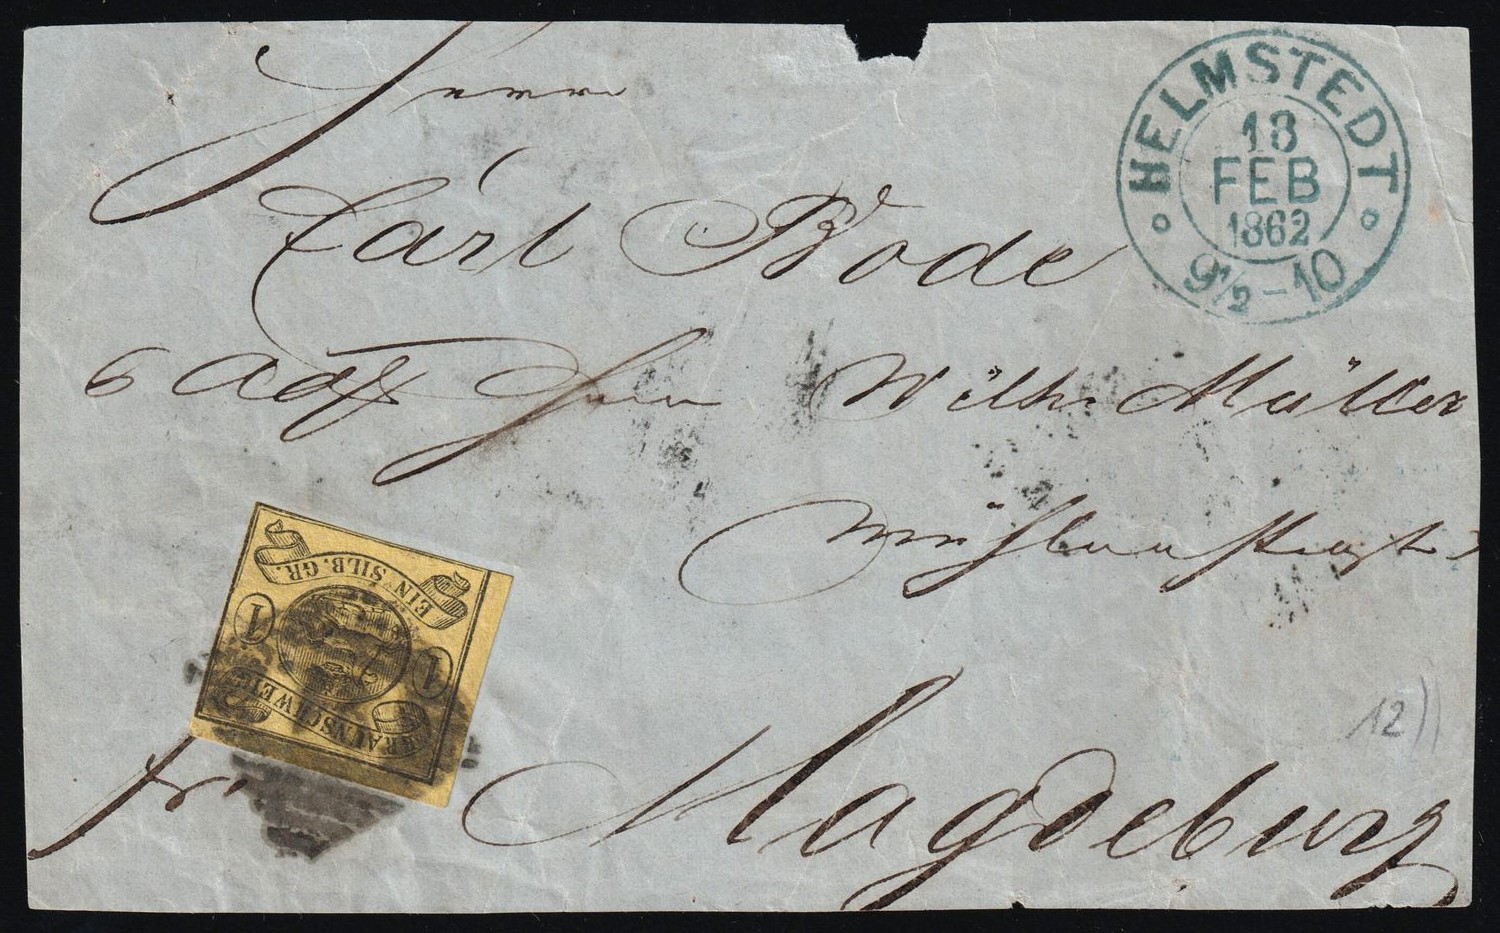 HELMSTEDT
18
FEB
1862
9½-10
Herrn
Carl Bode
Adr Herrn Wilh. Müller
EIN SILB. GR.
1 1
BRAUNSCHWEIG
fr. Magdeburg
12